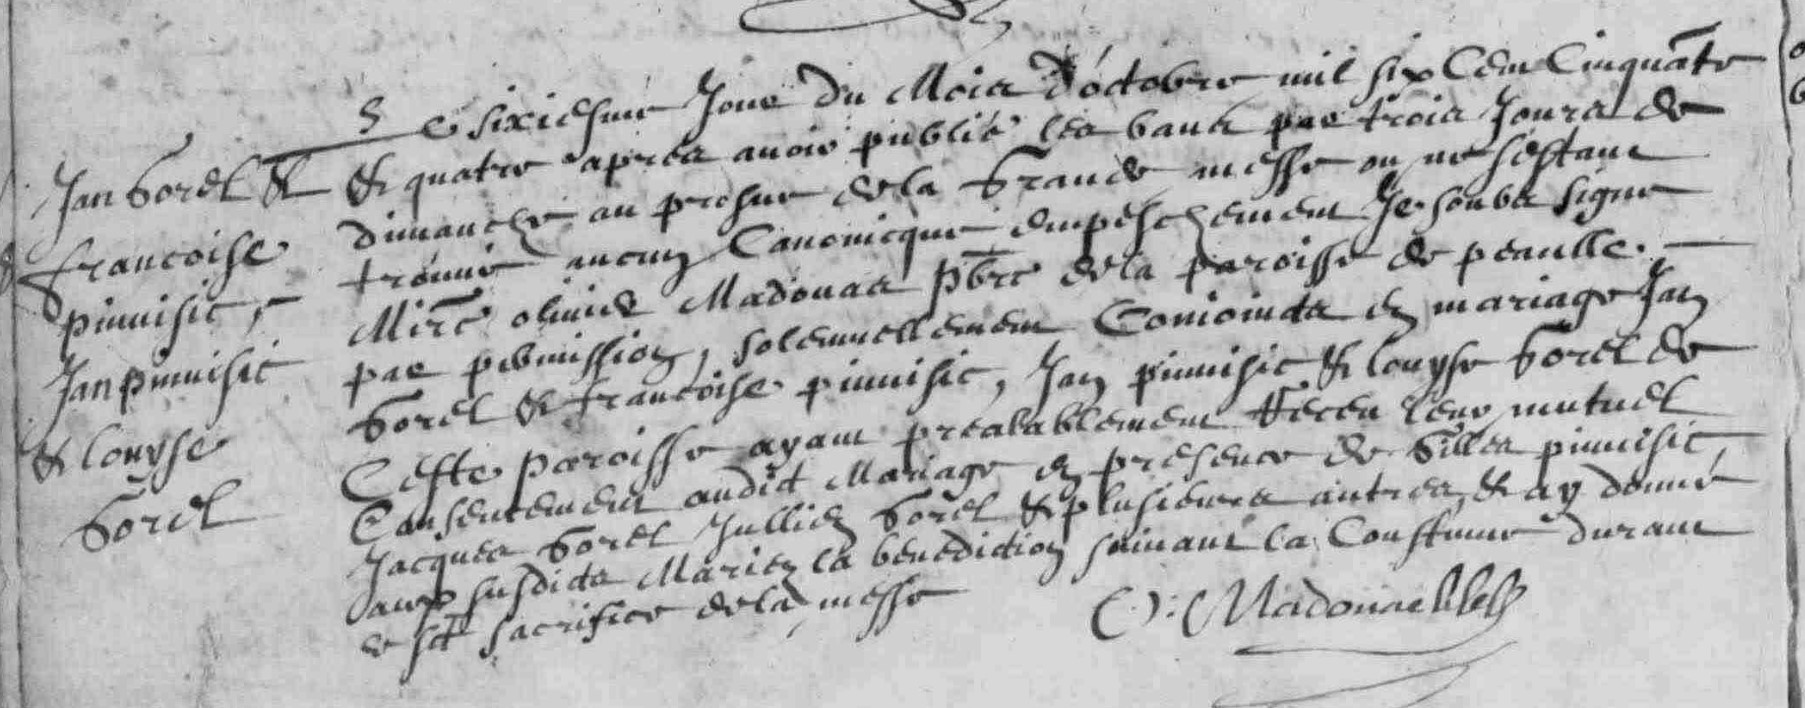 Jan Sorel &
francoise
pinnisic,
Jan pinnisic
& louyse
Sorel
Le sixiesme Jour du Mois d'octobre mil six Cent Cinquāte
& quatre apres auoir publié les bans par trois Jours de
dimanche au prosne de la Grande messe ou ne sestant
trouué aucun Canonicque empeschement Je soubs signe
Mire oliuier Madouas pbre de la paroisse de peaulle.
par permission, solemnellement Conioincts en mariage Jan
Sorel & francoise pinnisic, Jan pinnisic & louyse Sorel de
Ceste paroisse ayant prealablement Receu leur mutuel
Consentement audict Mariage en presence de Gilles pinnisic,
Jacques Sorel Jullien Sorel & plusieurs autres & ay donné
aux susdicts Mariez la benediction suiuant la Coustume durant
le st sacrifice de la messe
O: Madouas